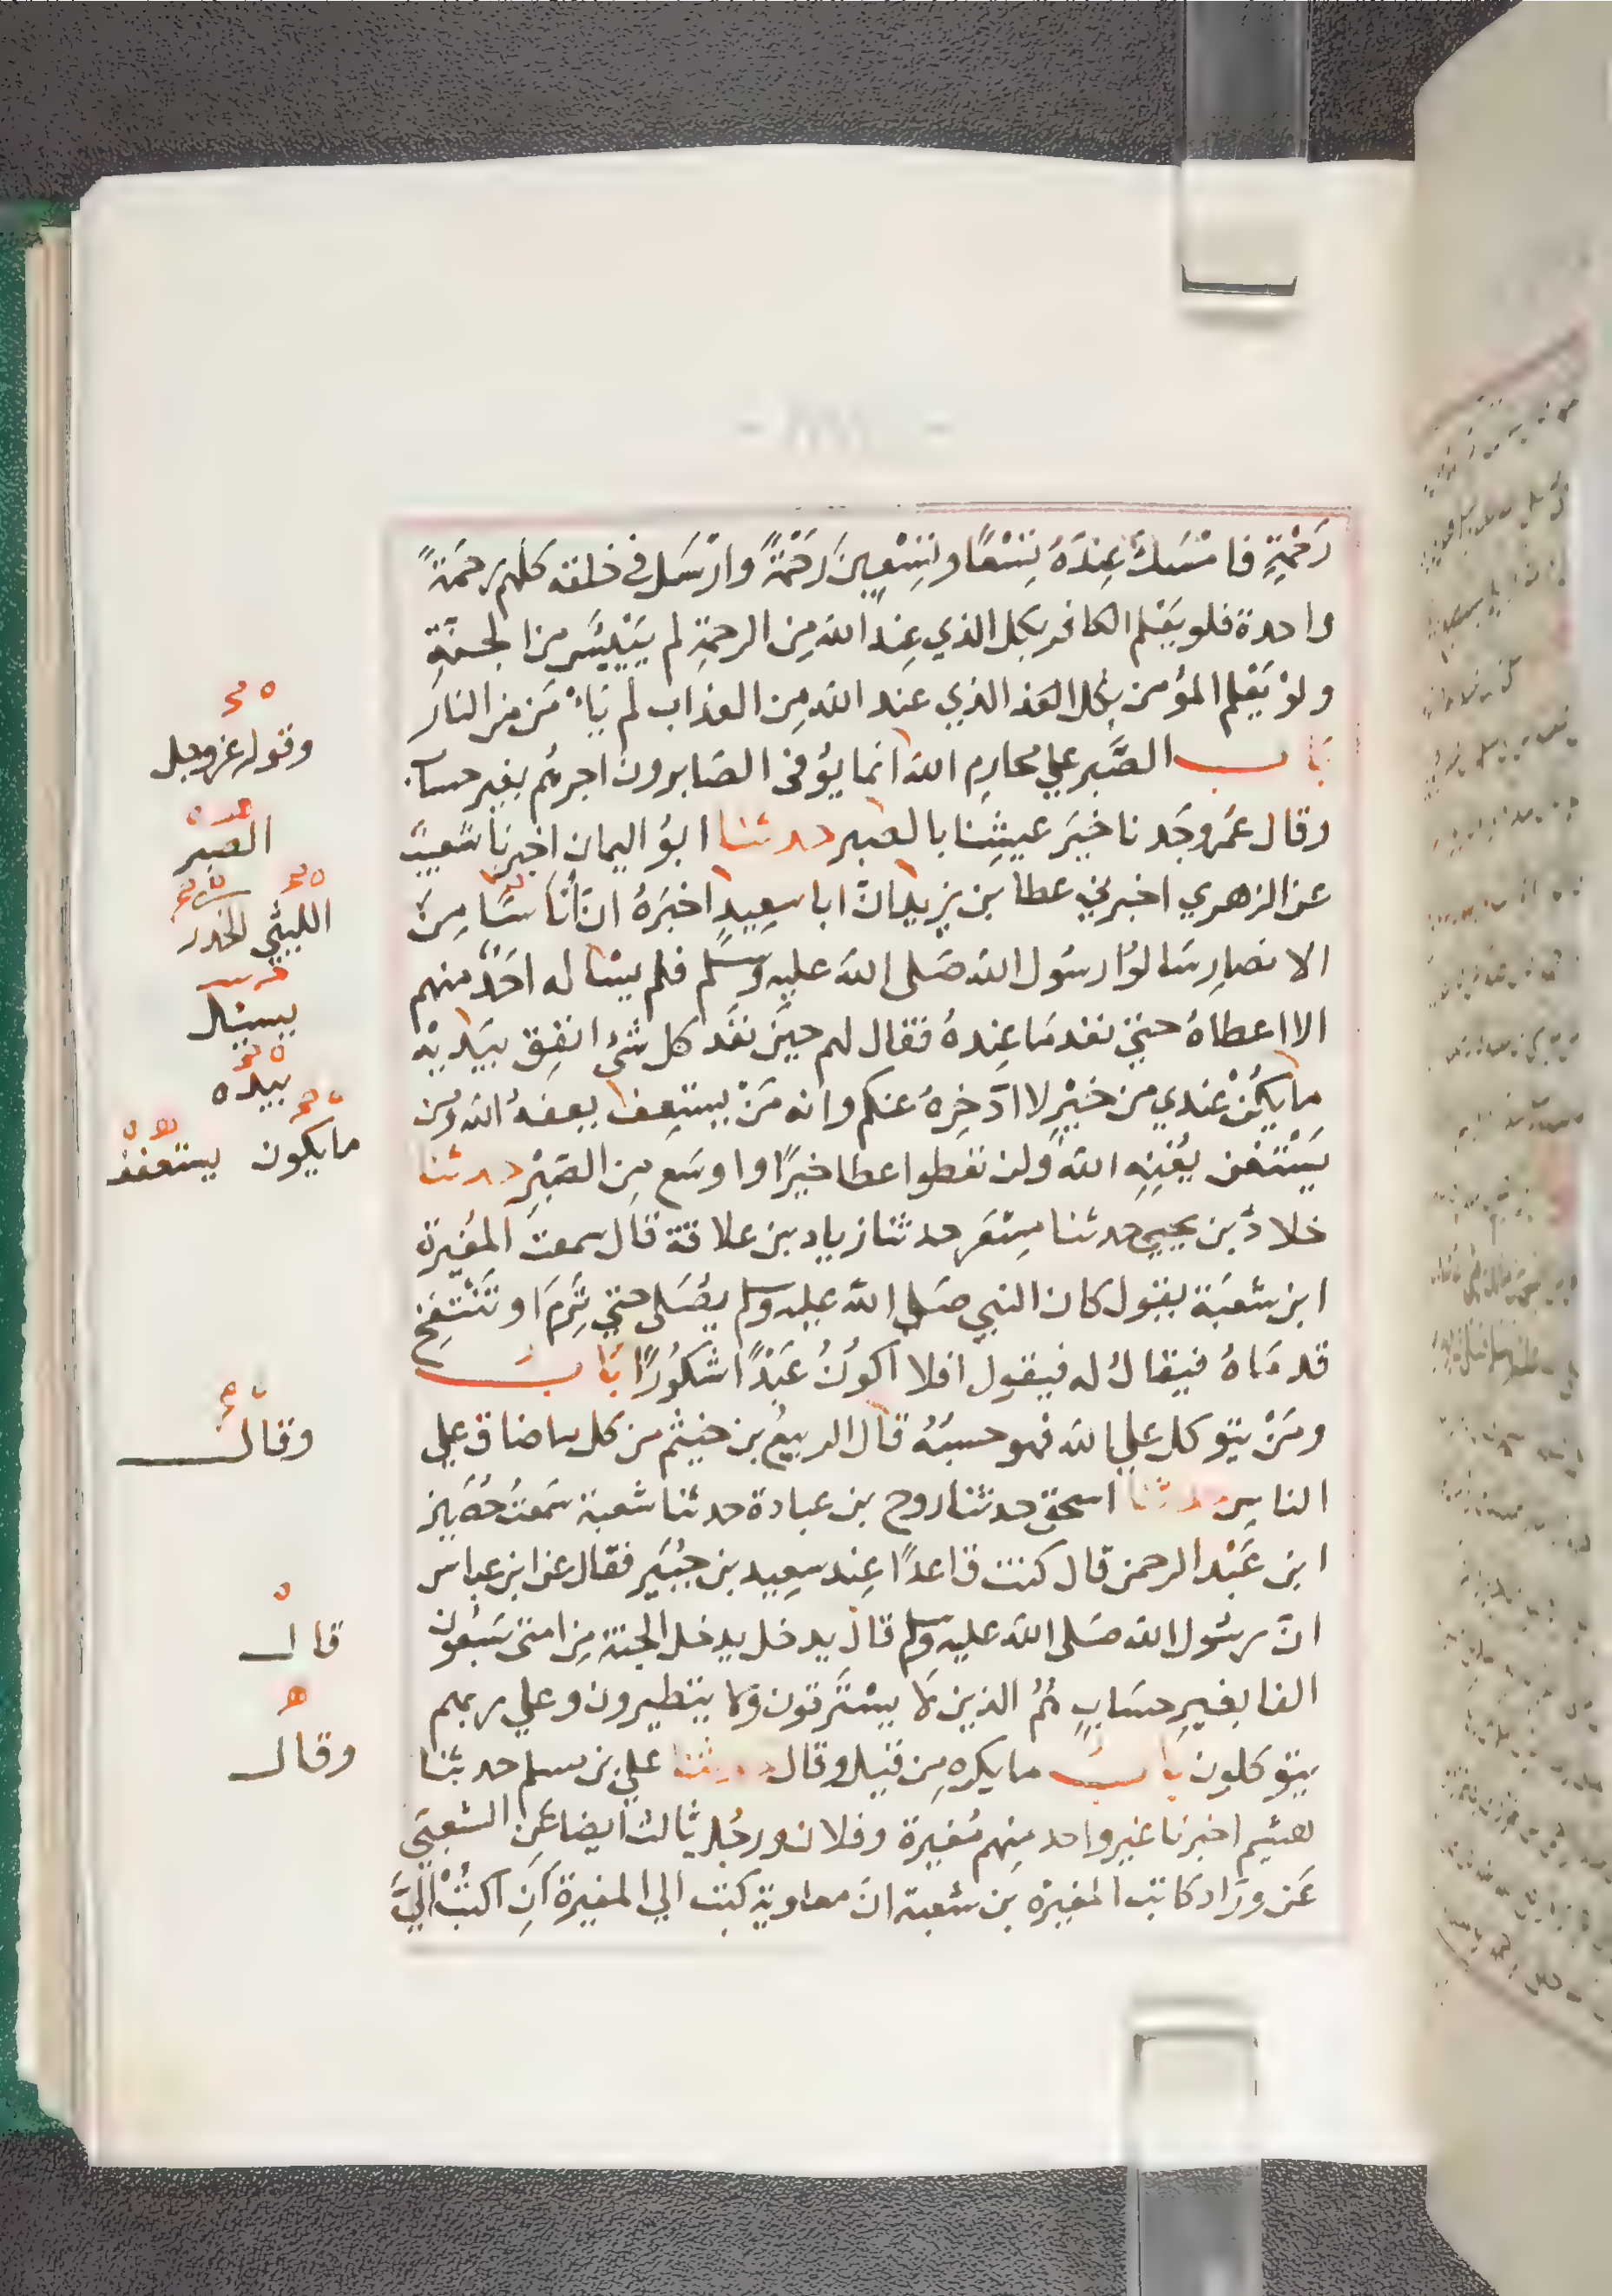 رَحْمَةٍ فامْسَكَ عِنْدَهُ تِسْعًا وتِسْعِينَ رَحْمَةً وارْسَل في خلقه كلهم رحمَةً
واحدة فلو يَعْلم الكافر بكل الذي عِندَ الله مِن الرحمةِ لم يَيْئَس مِن الجنةِ
ولوْ يَعْلم المؤمن بكل العذ الذي عند الله مِن العذاب لم يَاْمَن من النار
بَاب الصَّبر علي محارِمِ الله انما يوُفى الصَابرون اجرهُم بغير حساب
وقال عُمَر وجَدنا خيَر عيشِنا بالصبر حدثنا ابوُ اليمان اخبرنا شعيبٌ
عن الزهري اخبرني عطا بن يزيد انّ ابا سعِيدٍ اخبَرَهُ انّ أُنَاسًا مِنَ
الانصارِ سَالوُا رسُول الله صَلى الله عليه وسلم فلم يسْاله احَدٌ منهم
الا اعطاهُ حتي نفد مَا عِندهُ فقال لهم حِينَ نفَدَ كل شَيْء انفق بيَدَيْه
ما يكُنْ عندي من خيْرٍ لا ادَّخِرهُ عنكم وانه مَنْ يستعِف يعفهُ الله ومن
يَسْتغن يُغنِه الله ولن تعطوا عطا خيرًا واوسَع مِن الصَبْر حدثنا
خلادُ بن يحيي حدثنا مِسْعَر حدثنا زياد بن علاقة قال سمعت المُغيرة
ابن شعبَة يقول كان النبي صَلى الله عليه وسلم يصُلى حتي تَرِمَ او تَنْتفِخ
قدمَاهُ فيقالُ له فيقول افلا اكوُنُ عَبْدًا شكوُرًا بَاب
ومَنْ يتوكل علي الله فهو حسبُهُ قال الربيعُ بن خثيم من كل ما ضاق علي
الناسِ حدثنا اسحق حدثنا روح بن عبادة حدثنا شعبة سَمعتُ حُصَين
ابن عَبْد الرحمن قال كنت قاعدًا عِند سعِيد بن جُبَير فقال عن ابن عباس
انّ رسُول الله صَلى الله عليه وسلم قال يدخل يدخل الجنة مِن امتى سَبعُون
الفا بغيرِ حسَابٍ هُمُ الذين لا يسْتَرقون ولا يتطيرون وعلي ربهم
يتوكلون باب ما يكره مِن قيل وقال حدثنا علي بن مسلم حدثنا
هشيم اخبرنا غير واحد مِنهم مُغيرة وفلان ورجُل ثالث ايضا عَنِ الشعبي
عَن ورّاد كاتب المغيرة بن شعبة انّ معاوية كتب الي المغيرة انِ اكتُبْ اليَّ
وقوله عز وجل
الصبر
الليثي الخدري
يسئل
بيده
ما يكون يستعفف
وقال
قال
وقال